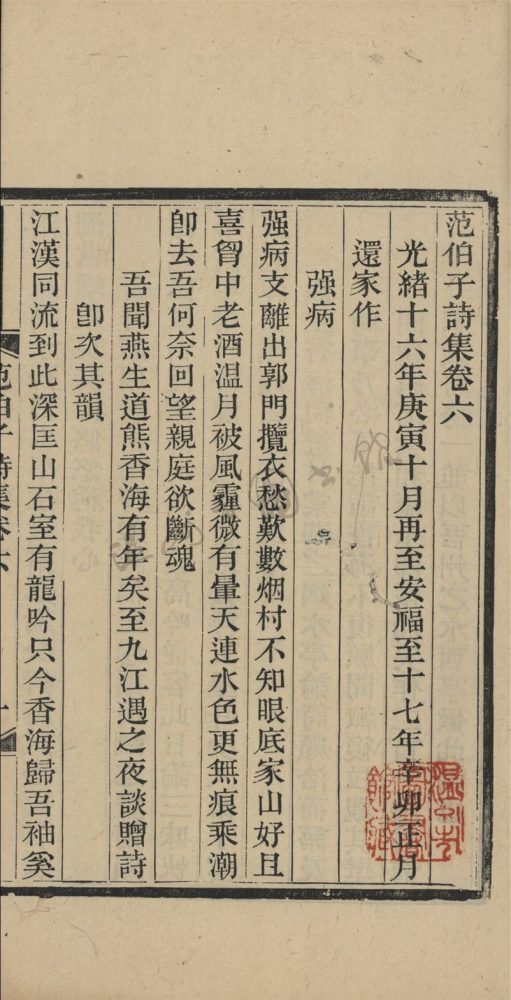 范伯子詩集卷六
光緒十六年庚寅十月再至安福至十七年辛卯正月
還家作
强病
强病支離出郭門攬衣愁歎數烟村不知眼底家山好且
喜胷中老酒温月被風霾微有暈天連水色更無痕乘潮
卽去吾何奈回望親庭欲斷魂
吾聞燕生道熊香海有年矣至九江遇之夜談贈詩
卽次其韻
江漢同流到此深匡山石室有龍吟只今香海歸吾袖奚
范伯子詩集卷六